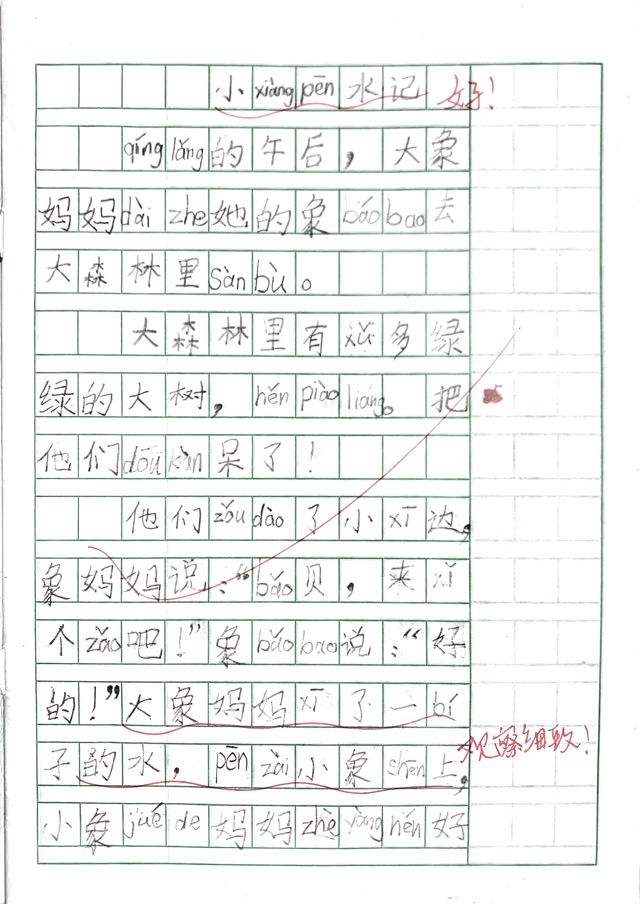 小xiàngpēn水记 好！
qínglǎng的午后，大象
妈妈dàizhe她的象bǎobao去
大森林里sànbù。
大森林里有xǔ多绿
绿的大树，hěnpiàoliang。把
他们dōukàn呆了！
他们zǒudào了小xī边，
象妈妈说：“bǎo贝，来xǐ
个zǎo吧！”象bǎobao说：“好
的！”大象妈妈xī了一bí
子的水，pēnzài小象shēn上， 观察细致！
小象juéde妈妈zhèyànghěn好